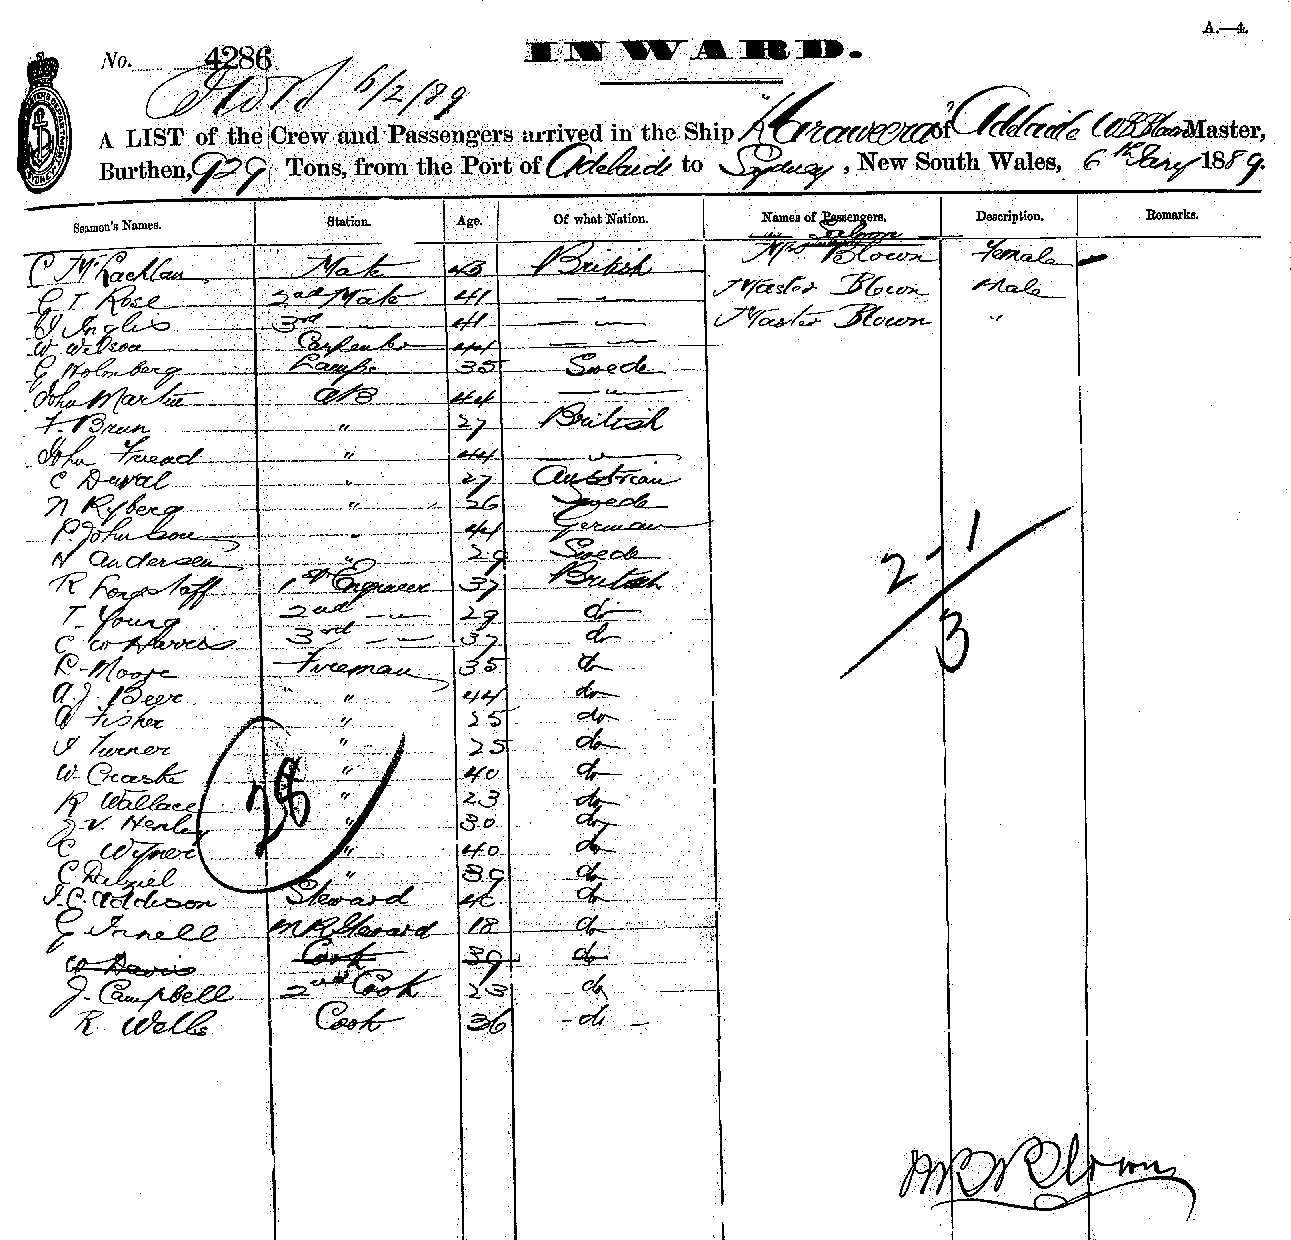 A.—4.
No. 4286 INWARD.
6/2/89
A LIST of the Crew and Passengers arrived in the Ship "Kararweera" of Adelaide W B Blown Master,
Burthen, 929 Tons, from the Port of Adelaide to Sydney, New South Wales, 6th Fary 1889.
Seamen's Names. Station. Age. Of what Nation. Names of Passengers. Description. Remarks.
Saloon
C McLachlan Mate 43 British Mrs Blown Female
G T Rose 2nd Mate 41 — „ — Master Blown Male
Inglis 3rd — „ — 41 — „ — Master Blown "
W Wilson Carpenter 44 — „ —
G Holmberg Lamps 35 Swede
John Martin AB 44 — „ —
F. Brun " 27 British
John Fread " 44 — „ —
C Duval " 27 Austrian
N Ryberg " 26 Swede
P Johnson " 44 German
N Andersen " 29 Swede
R Longstaff 1st Engineer 37 British
T. Young 2nd — „ — 29 do
C W Harris 3rd — — 37 do
R Moore Fireman 35 do
A. J. Beer " 44 do
A Fisher " 25 do
A Turner " 25 do
W Craske " 40 do
R Wallace " 23 do
J. V. Henley " 30 do
C Wyner " 40 do
C Dalziel " 39 do
J. C. Addison Steward do
G Innell M R Steward 18 do
W Davis Cook 39 do
J. Campbell 2nd Cook 23 do
R Wells Cook 36 - do -
28
2-1
3
W B Blown